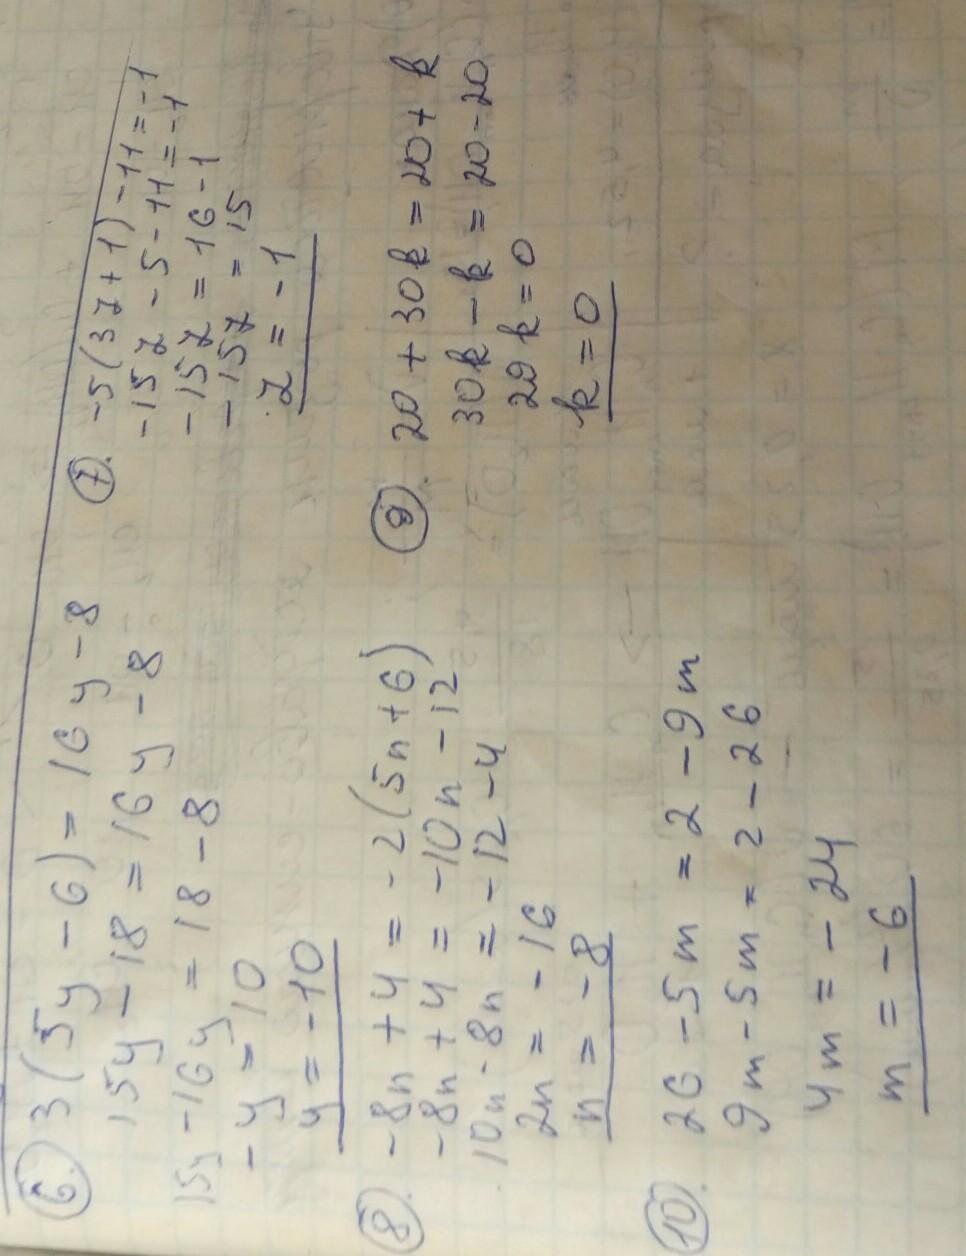 6. 3(5y-6)=16y-8
15y-18=16y-8
15y-16y=18-8
-y=10
y=-10
7. -5(3z+1)-11=-1
-15z-5-11=-1
-15z=16-1
-15z=15
z=-1
8. -8n+4=-2(5n+6)
-8n+4=-10n-12
10n-8n=-12-4
2n=-16
n=-8
9. 20+30k=20+k
30k-k=20-20
29k=0
k=0
10. 26-5m=2-9m
9m-5m=2-26
4m=-24
m=-6